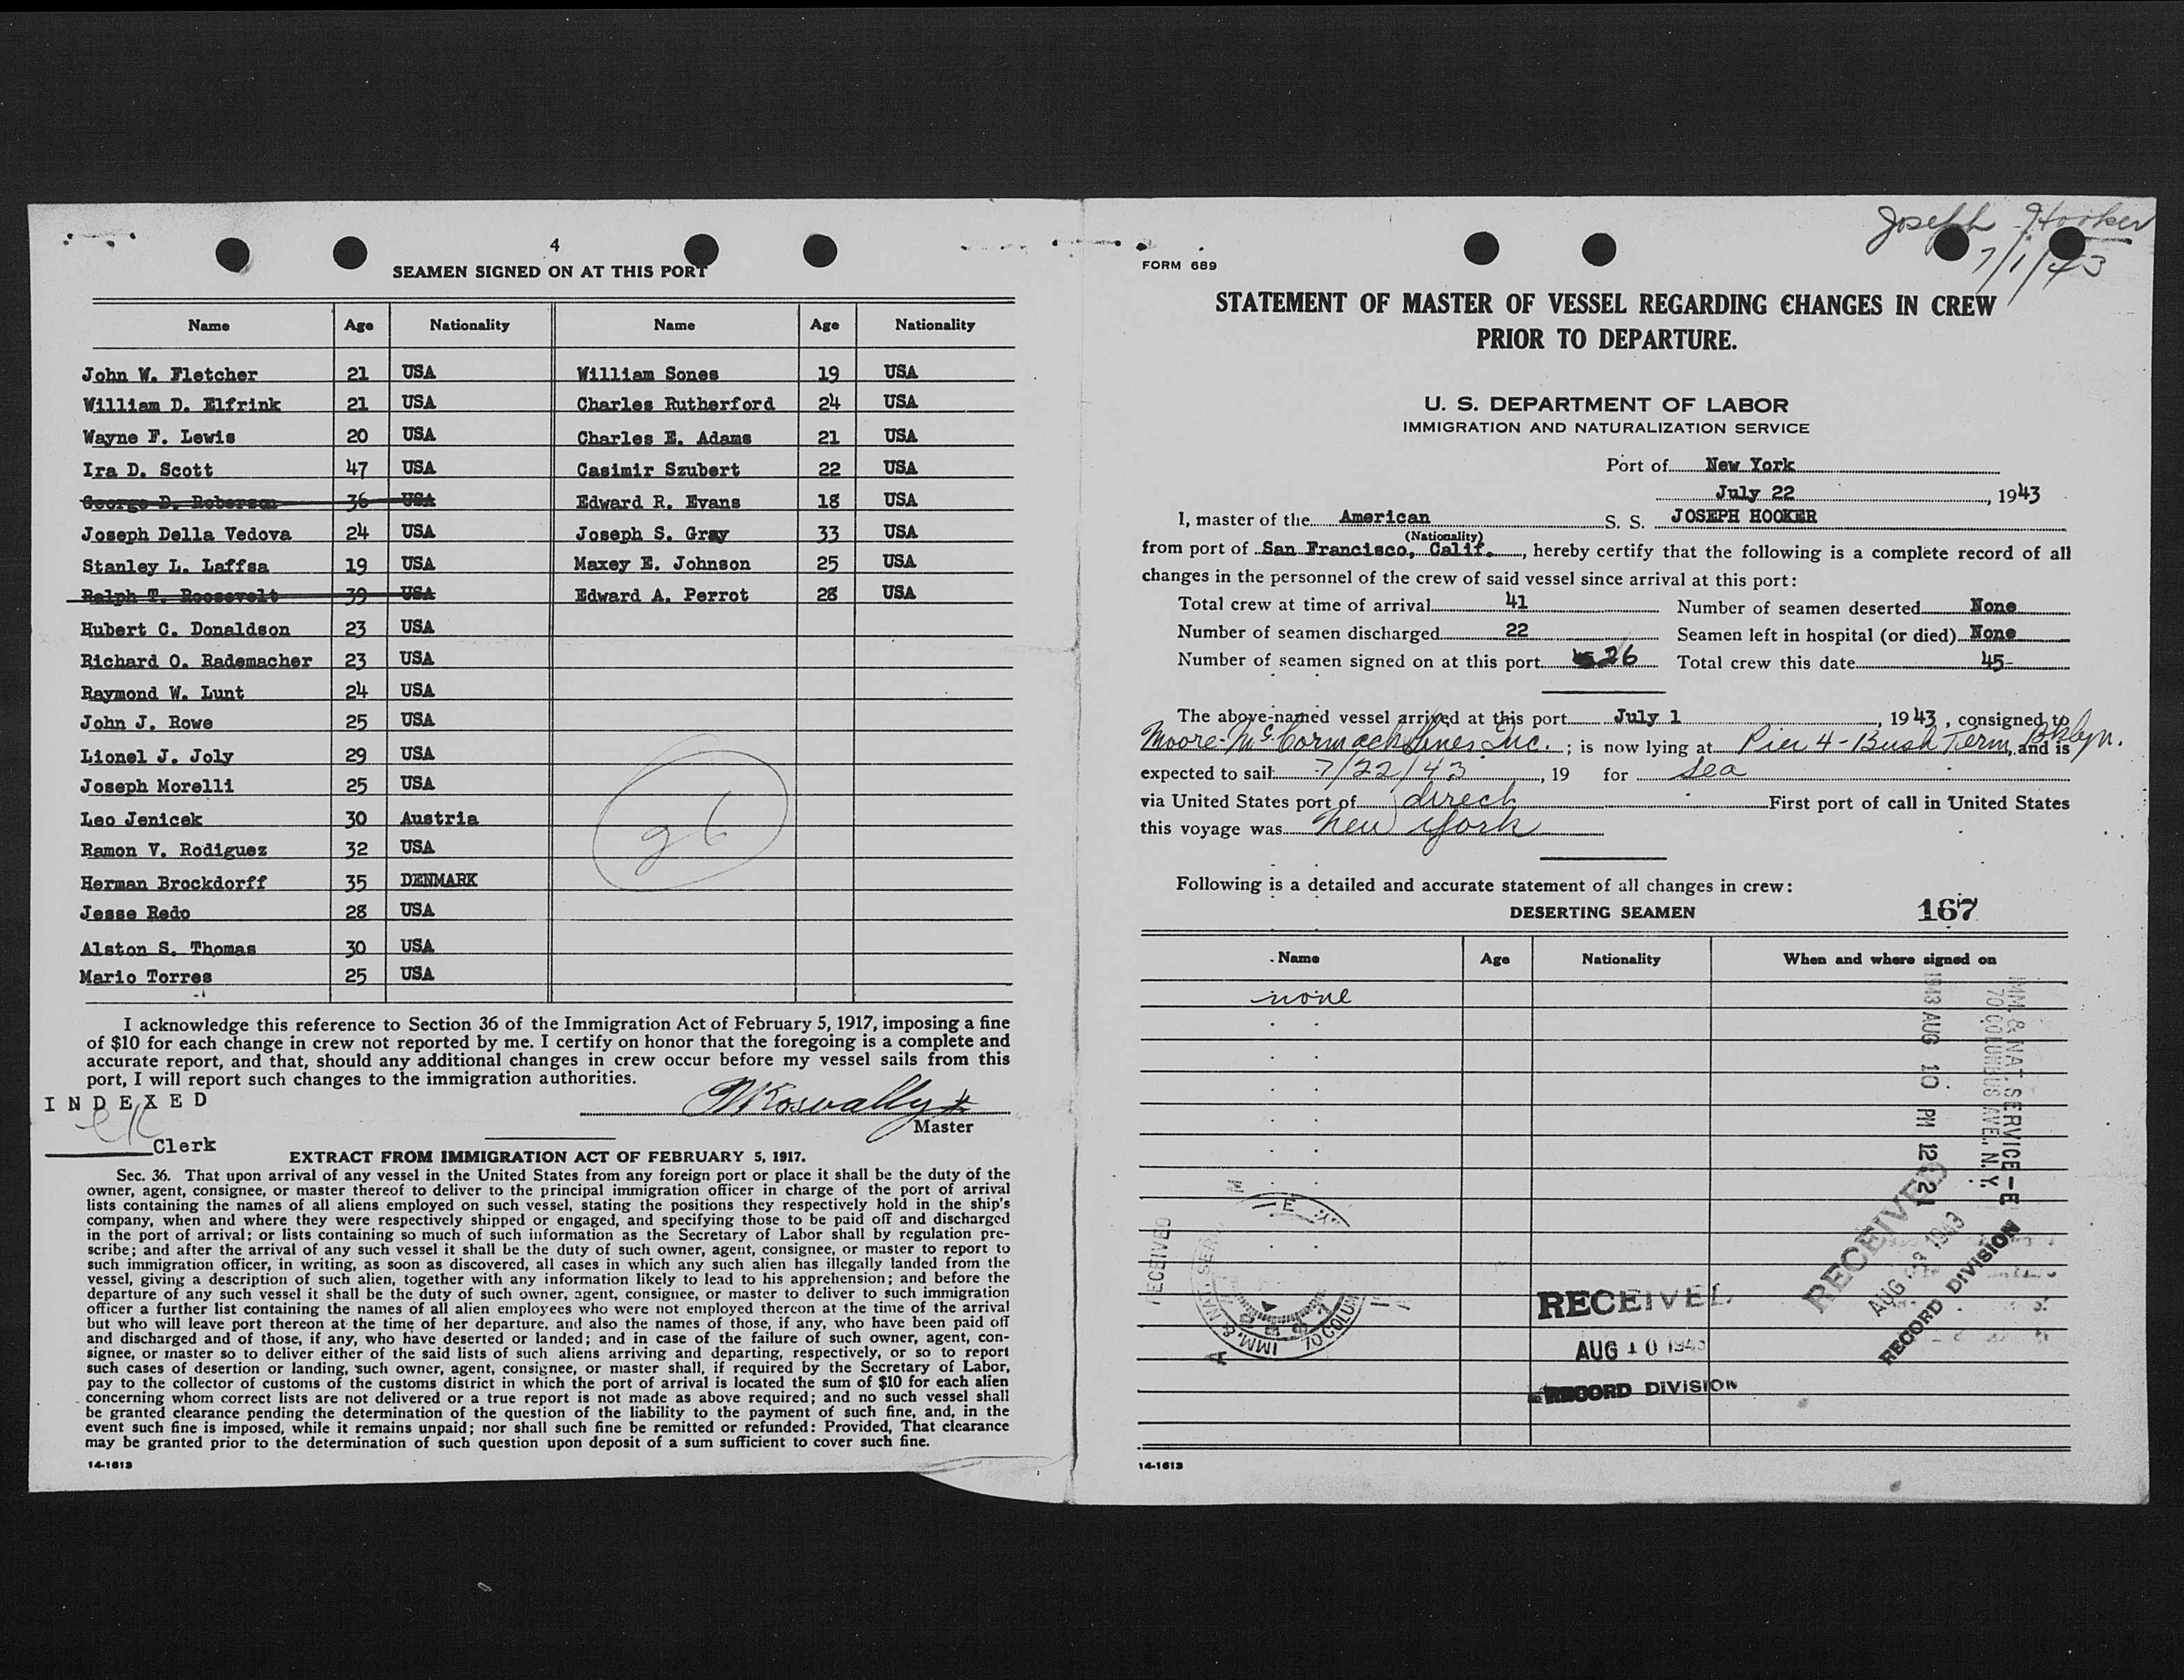 4
SEAMEN SIGNED ON AT THIS PORT
Name Age Nationality Name Age Nationality
John W. Fletcher 21 USA William Sones 19 USA
William D. Elfrink 21 USA Charles Rutherford 24 USA
Wayne F. Lewis 20 USA Charles E. Adams 21 USA
Ira D. Scott 47 USA Casimir Szubert 22 USA
George D. Roberson 36 USA Edward R. Evans 18 USA
Joseph Della Vedova 24 USA Joseph S. Gray 33 USA
Stanley L. Laffsa 19 USA Maxey E. Johnson 25 USA
Ralph T. Roosevelt 39 USA Edward A. Perrot 28 USA
Hubert C. Donaldson 23 USA
Richard O. Rademacher 23 USA
Raymond W. Lunt 24 USA
John J. Rowe 25 USA
Lionel J. Joly 29 USA
Joseph Morelli 25 USA
Leo Jenicek 30 Austria
26
Ramon V. Rodiguez 32 USA
Herman Brockdorff 35 DENMARK
Jesse Redo 28 USA
Alston S. Thomas 30 USA
Mario Torres 25 USA
I acknowledge this reference to Section 36 of the Immigration Act of February 5, 1917, imposing a fine
of $10 for each change in crew not reported by me. I certify on honor that the foregoing is a complete and
accurate report, and that, should any additional changes in crew occur before my vessel sails from this
port, I will report such changes to the immigration authorities.
INDEXED
Master
Clerk
EXTRACT FROM IMMIGRATION ACT OF FEBRUARY 5, 1917.
Sec. 36. That upon arrival of any vessel in the United States from any foreign port or place it shall be the duty of the
owner, agent, consignee, or master thereof to deliver to the principal immigration officer in charge of the port of arrival
lists containing the names of all aliens employed on such vessel, stating the positions they respectively hold in the ship's
company, when and where they were respectively shipped or engaged, and specifying those to be paid off and discharged
in the port of arrival; or lists containing so much of such information as the Secretary of Labor shall by regulation pre-
scribe; and after the arrival of any such vessel it shall be the duty of such owner, agent, consignee, or master to report to
such immigration officer, in writing, as soon as discovered, all cases in which any such alien has illegally landed from the
vessel, giving a description of such alien, together with any information likely to lead to his apprehension; and before the
departure of any such vessel it shall be the duty of such owner, agent, consignee, or master to deliver to such immigration
officer a further list containing the names of all alien employees who were not employed thereon at the time of the arrival
but who will leave port thereon at the time of her departure, and also the names of those, if any, who have been paid off
and discharged and of those, if any, who have deserted or landed; and in case of the failure of such owner, agent, con-
signee, or master so to deliver either of the said lists of such aliens arriving and departing, respectively, or so to report
such cases of desertion or landing, such owner, agent, consignee, or master shall, if required by the Secretary of Labor,
pay to the collector of customs of the customs district in which the port of arrival is located the sum of $10 for each alien
concerning whom correct lists are not delivered or a true report is not made as above required; and no such vessel shall
be granted clearance pending the determination of the question of the liability to the payment of such fine, and, in the
event such fine is imposed, while it remains unpaid; nor shall such fine be remitted or refunded: Provided, That clearance
may be granted prior to the determination of such question upon deposit of a sum sufficient to cover such fine.
14-1613
Joseph Hooker
7/1/43
FORM 689
STATEMENT OF MASTER OF VESSEL REGARDING CHANGES IN CREW
PRIOR TO DEPARTURE.
U. S. DEPARTMENT OF LABOR
IMMIGRATION AND NATURALIZATION SERVICE
Port of New York
July 22, 1943
I, master of the American S. S. JOSEPH HOOKER
(Nationality)
from port of San Francisco, Calif., hereby certify that the following is a complete record of all
changes in the personnel of the crew of said vessel since arrival at this port:
Total crew at time of arrival 41 Number of seamen deserted None
Number of seamen discharged 22 Seamen left in hospital (or died) None
Number of seamen signed on at this port 26 Total crew this date 45
The above-named vessel arrived at this port July 1, 1943, consigned to
Moore-McCormack Lines Inc.; is now lying at Pier 4 - Bush Term, Bklyn. and is
expected to sail 7/22/43, 19 for Sea
via United States port of direct First port of call in United States
this voyage was New York
Following is a detailed and accurate statement of all changes in crew:
DESERTING SEAMEN 167
Name Age Nationality When and where signed on
none
IMM. & NAT. SERVICE-E
70 COLUMBUS AVE., N. Y.
1943 AUG 10 PM 12 21
RECEIVED
RECEIVED
AUG 10 1943
RECORD DIVISION
RECEIVED
AUG 1943
RECORD DIVISION
14-1613